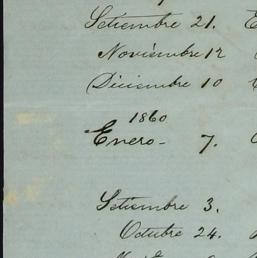 Setiembre 21.
Noviembre 12
Diciembre 10
1860
Enero - 7.
Setiembre 3.
Octubre 24.